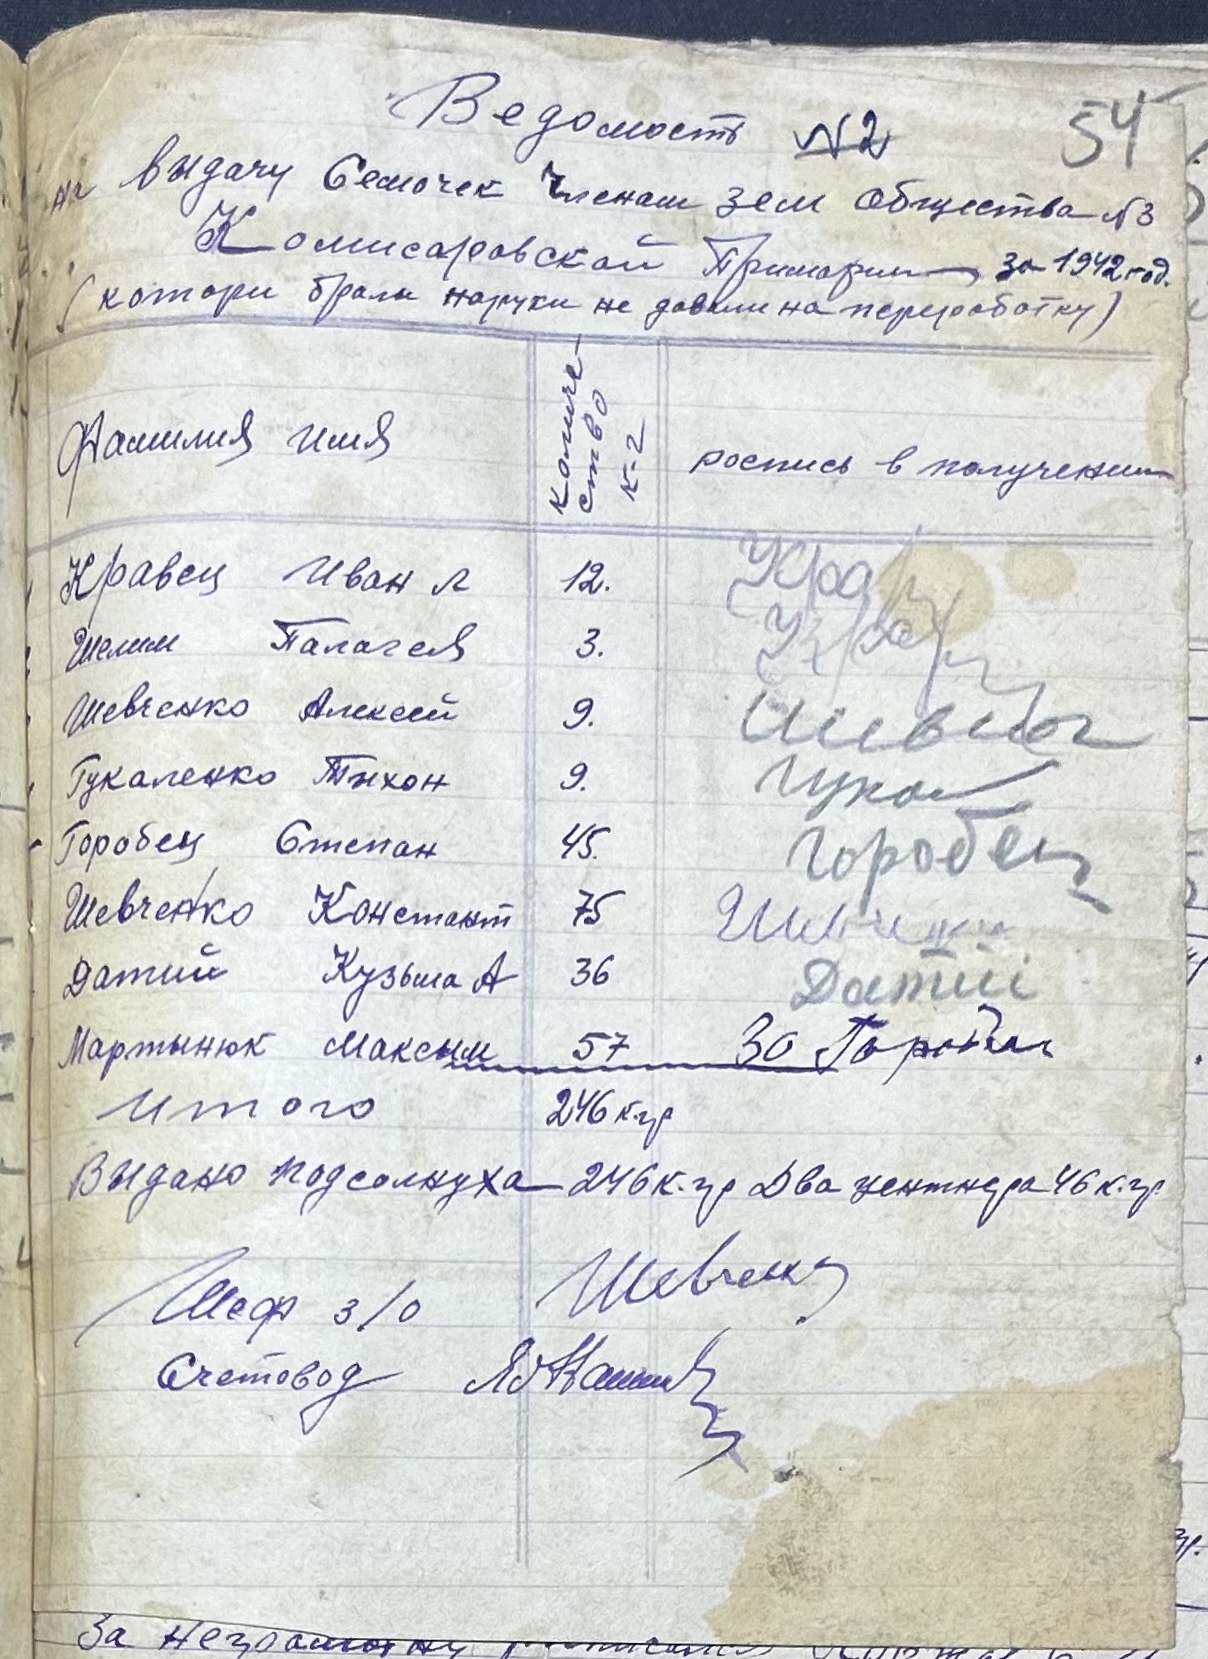 54
Ведомость N2
на выдачу Семочек Членам зем общества N3
Комисаровской Примарии за 1942 год.
(котори брали наруки не довали на переработку)
Фамилия имя
Количе-
ство
к-г
роспись в получении
Кравец Иван Л 12. Кра
Шелим Палагея 3. Кра
Шевченко Алексей 9.
Гукаленко Тихон 9. Гукал
Горобец Степан 45. Горобец
Шевченко Констант 75
Датий Кузьма А 36 Датиі
Мартынюк Максым 57 За
Итого 246 к.гр
Выдано Подсолнуха 246 к.гр Два центнера 46 к.гр
Шеф з/о Шевченко
Счетовод
За неграмотну